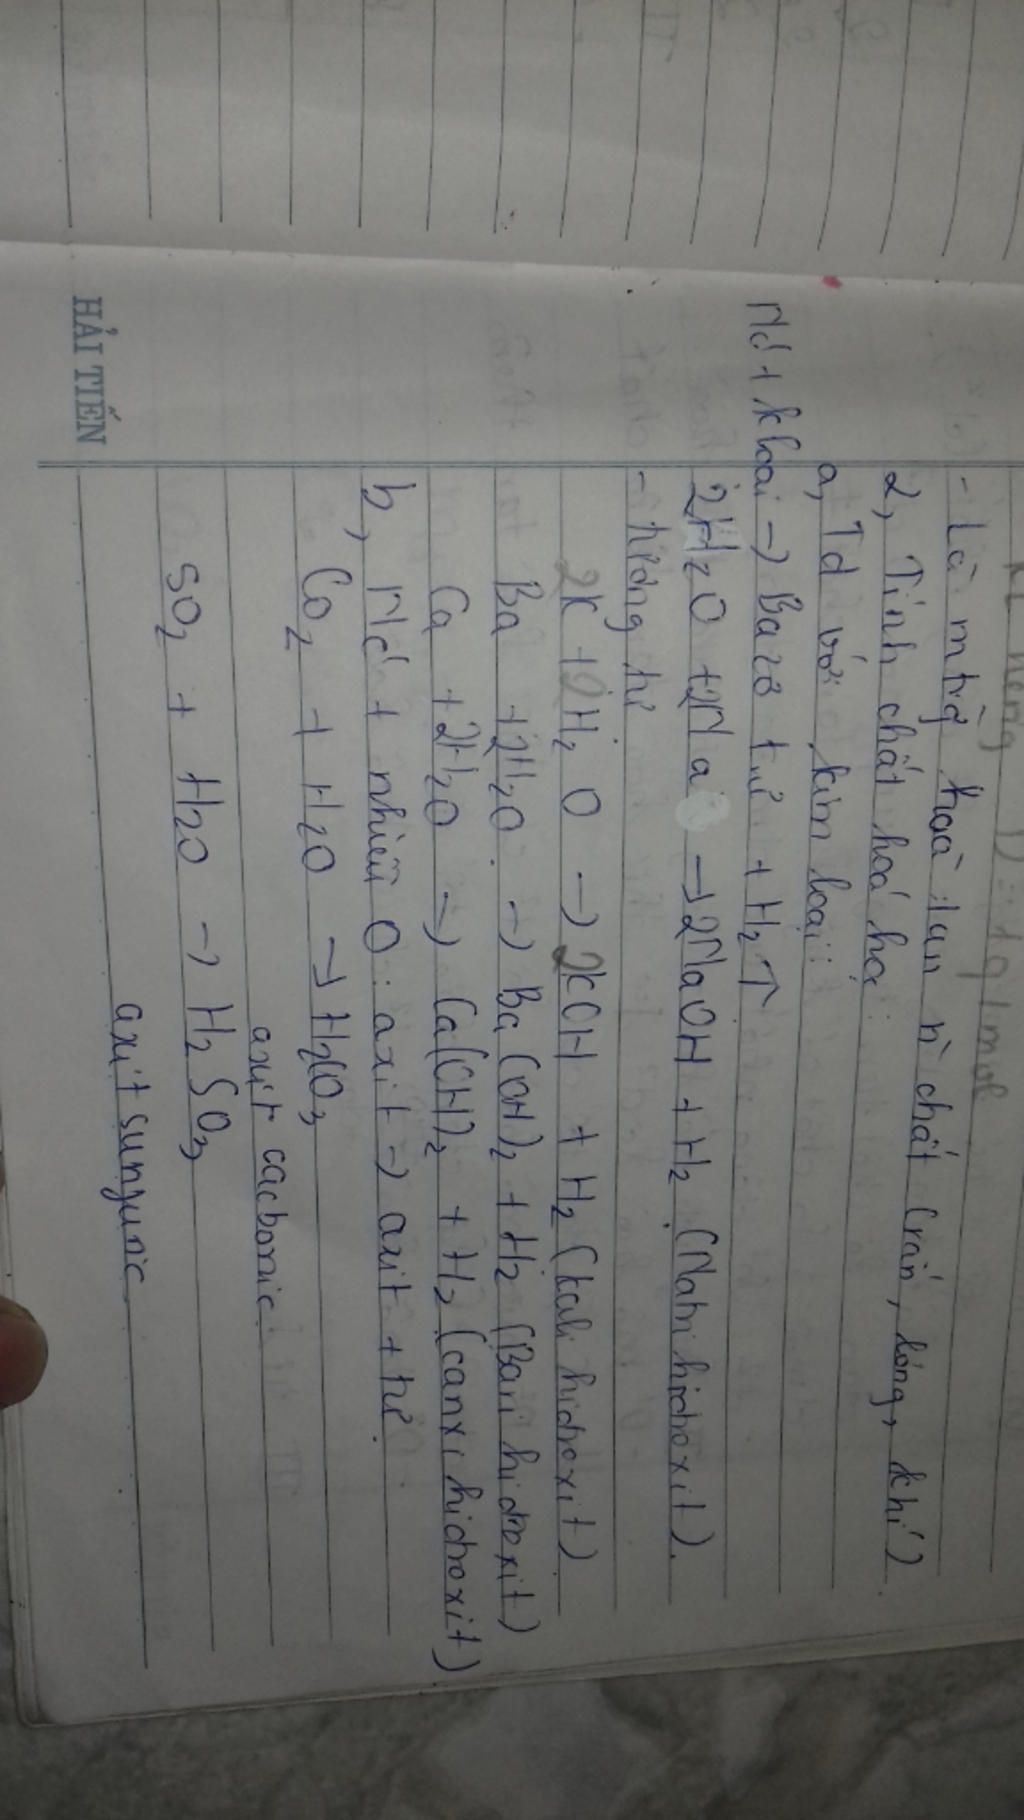 - Là mtrg hoà tan n' chất (rắn, lỏng, khí).
2, Tính chất hoá học:
a, Td với kim loại:
Nc + kloại → Bazơ tư + H2↑
2H2O + 2Na → 2NaOH + H2 (Natri hidroxit).
- tương tự
2K + 2H2O → 2KOH + H2 (kali hidroxit)
Ba + 2H2O → Ba(OH)2 + H2 (Bari hidroxit)
Ca + 2H2O → Ca(OH)2 + H2 (canxi hidroxit)
b, Nc + nhiều O: axit → axit + tư.
CO2 + H2O → H2CO3
axit cacbonic
SO2 + H2O → H2SO3
axit sunfuric
HẢI TIẾN